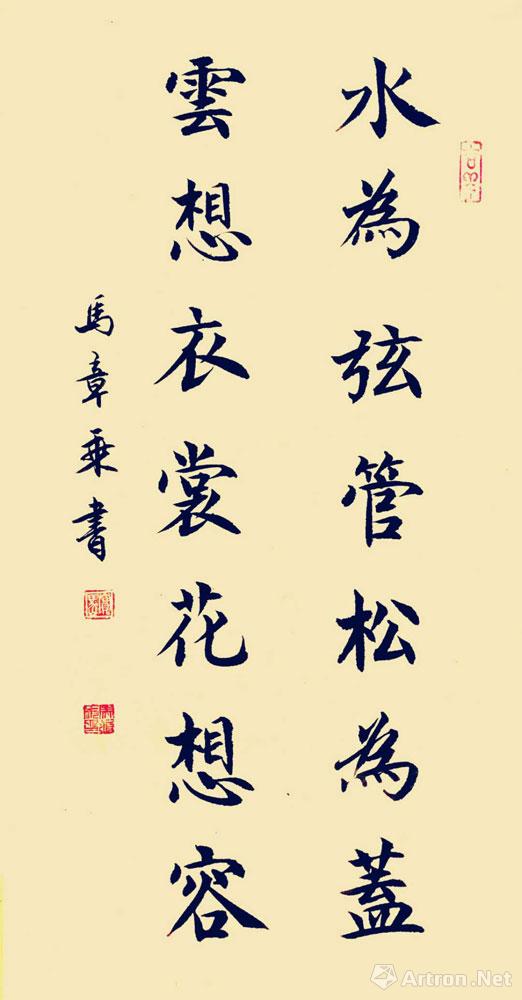 水為弦管松為蓋
雲想衣裳花想容
馬章乘書
Artron.Net